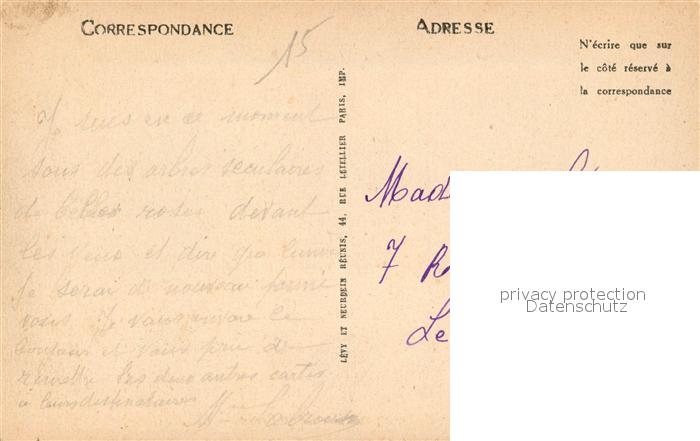 CORRESPONDANCE
15
ADRESSE
N'écrire que sur
le côté réservé à
la correspondance
LÉVY ET NEURDEIN RÉUNIS, 44, RUE LETELLIER PARIS, IMP.
suis en ce moment
sous des arbres séculaires
de belles roses devant
les yeux et dire que
Je serai de nouveau
vous. Je vous envoie le
bonjour et vous prie de
remettre les deux autres cartes
à leurs destinataires
Mad
7 R
Le
privacy protection
Datenschutz